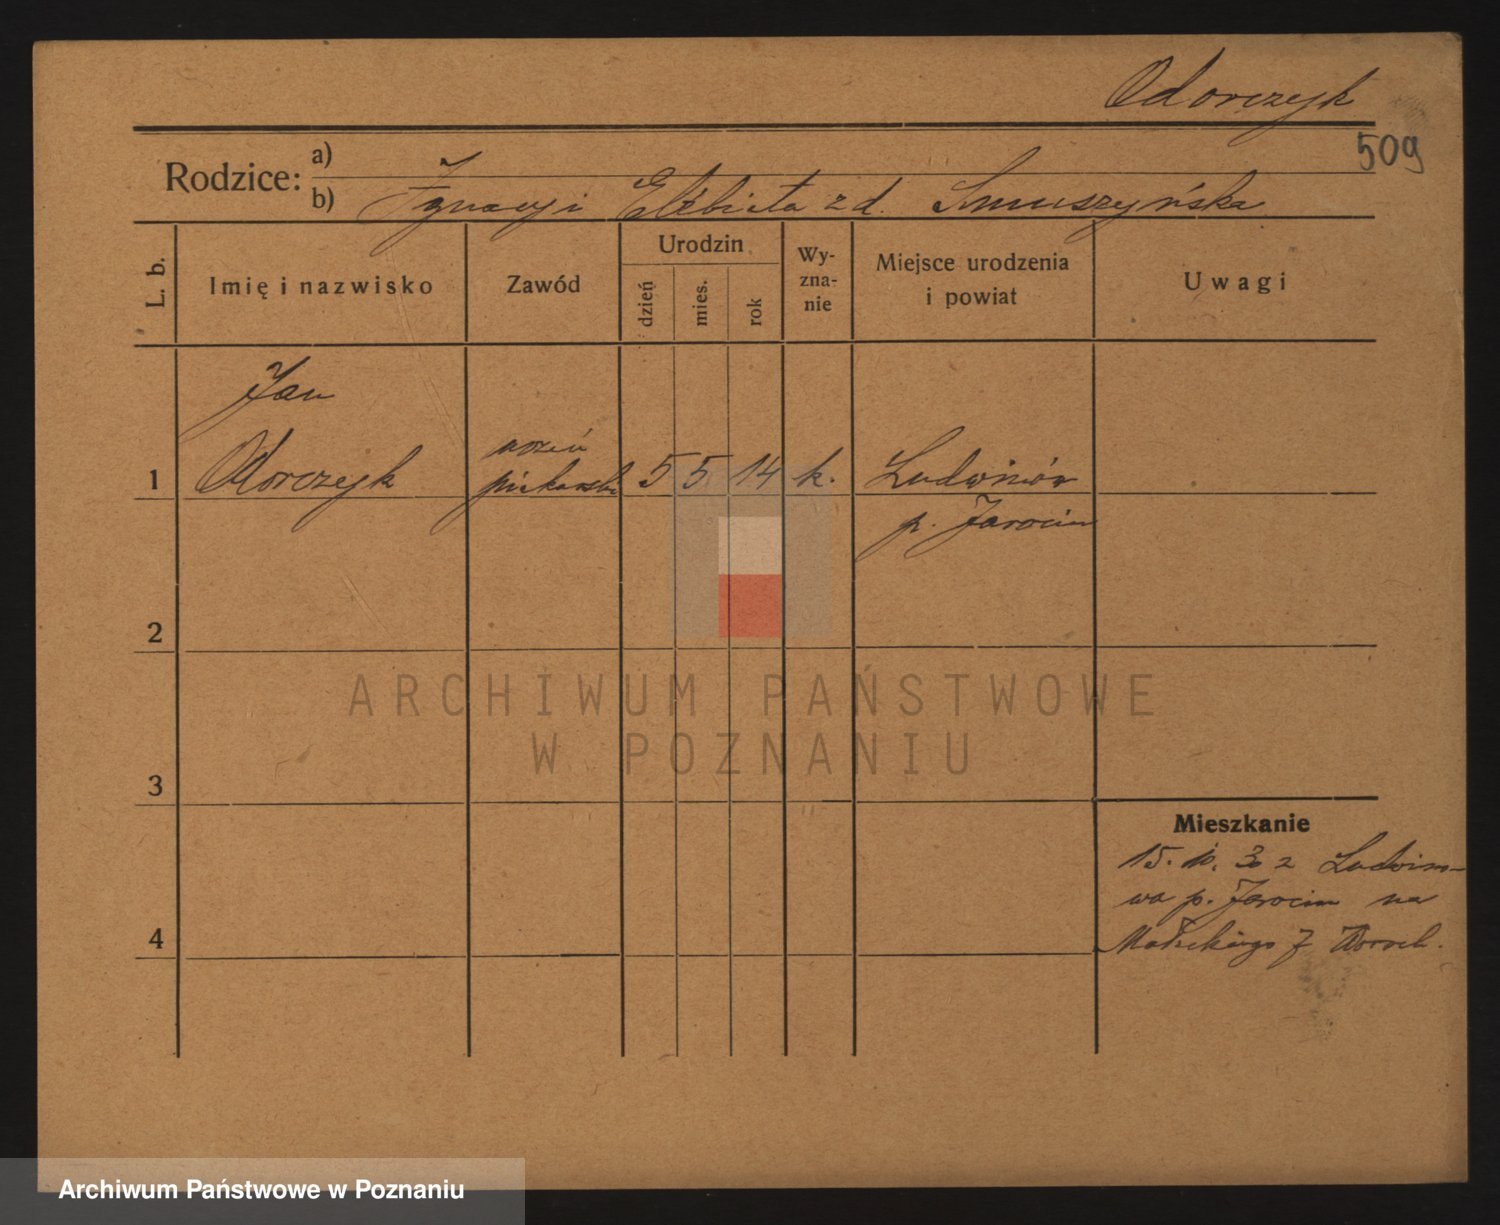 Odorczyk
509
Rodzice: a)
b) Ignacy i Elżbieta z d. Smuszyńska
L. b.
Imię i nazwisko
Zawód
Urodzin
dzień
mies.
rok
Wy-
zna-
nie
Miejsce urodzenia
i powiat
Uwagi
Jan
1 Odorczyk
uczeń
piekarski
5 5 14 k. Ludwinów
p. Jarocin
2
ARCHIWUM PAŃSTWOWE
W POZNANIU
3
Mieszkanie
15. 30 z Ludwino-
wa p. Jarocin na
4
Archiwum Państwowe w Poznaniu